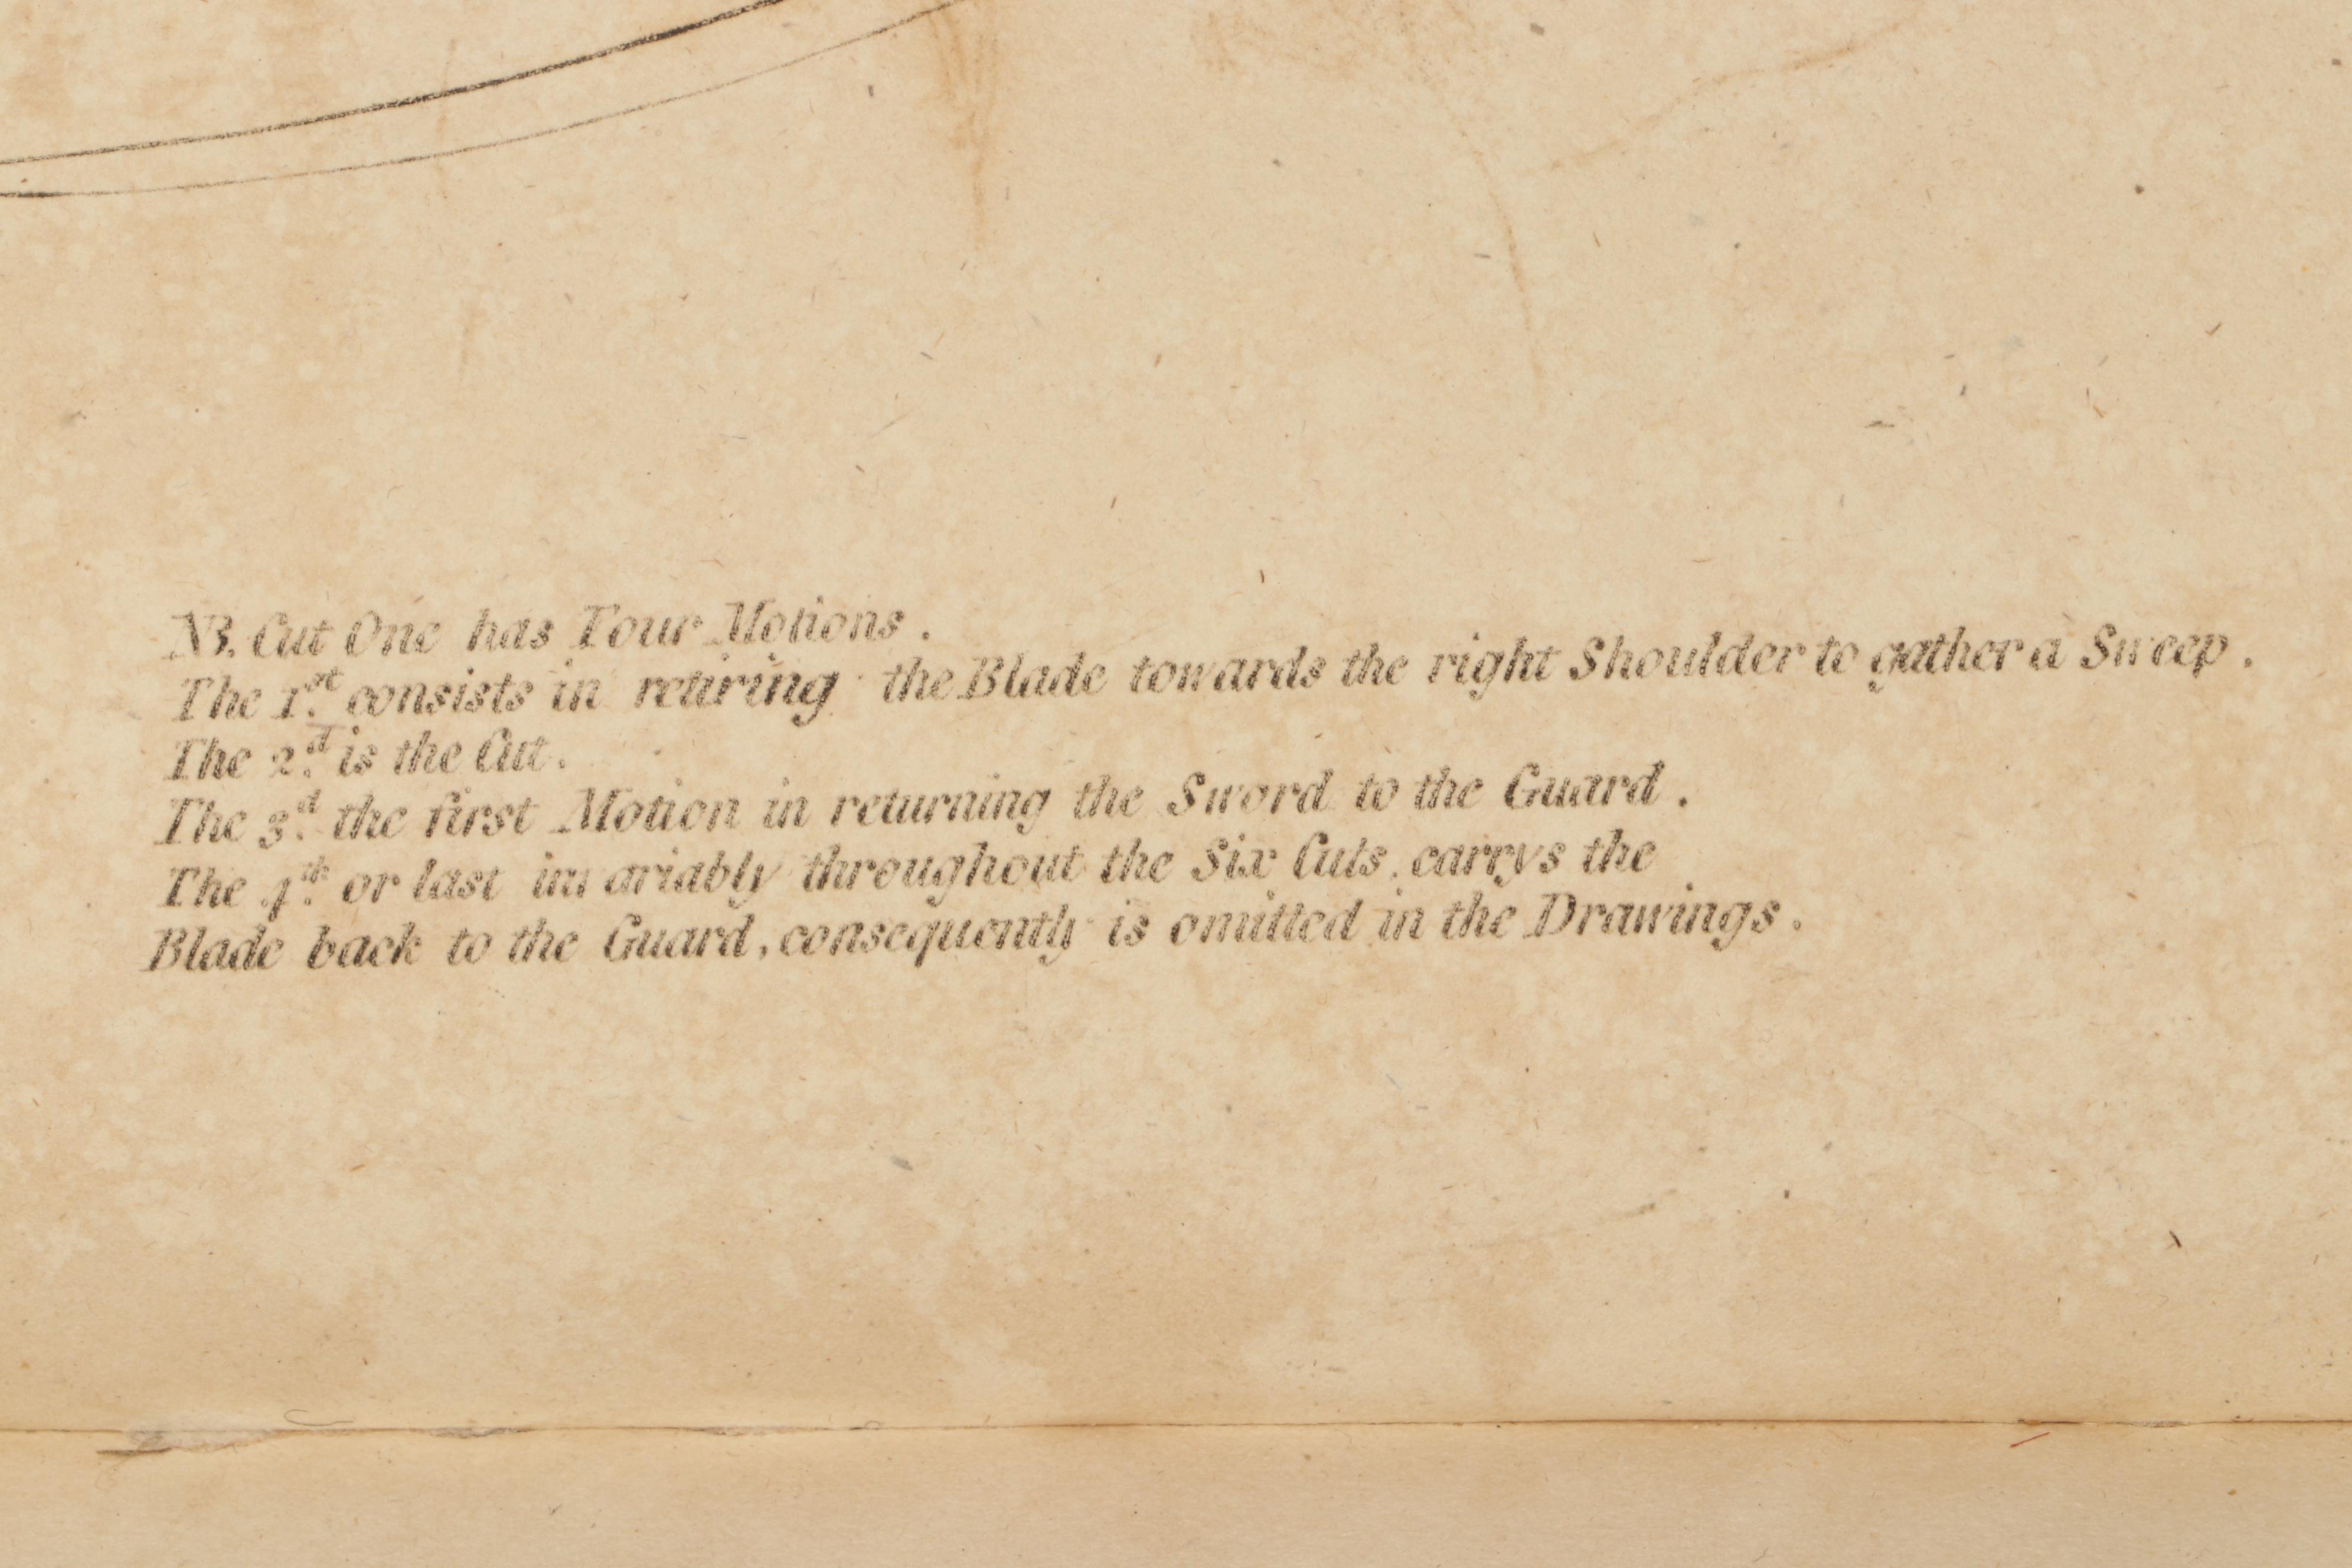 NB. Cut One has Four Motions.
The 1st. consists in retiring the Blade towards the right Shoulder to gather a Sweep.
The 2d. is the Cut.
The 3d. the first Motion in returning the Sword to the Guard.
The 4th. or last invariably throughout the Six Cuts, carrys the
Blade back to the Guard, consequently is omitted in the Drawings.